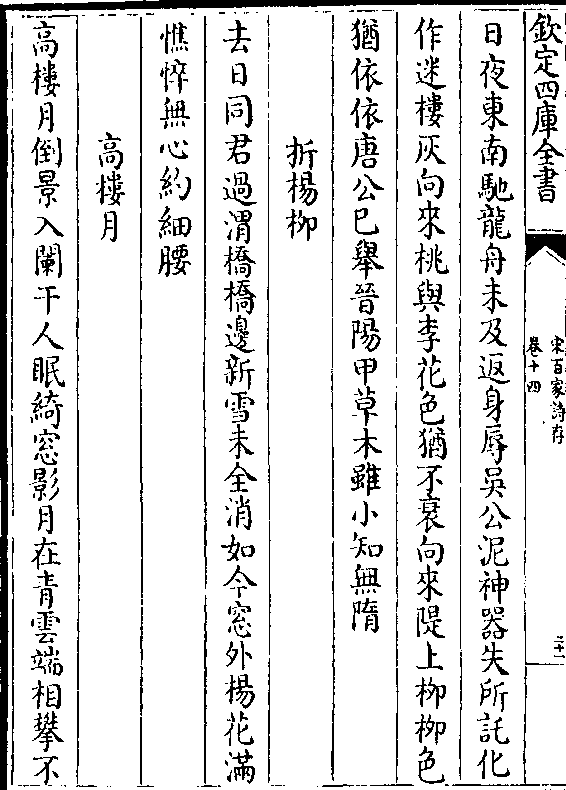 欽定四庫全書
宋百家詩存
卷十四
二十一
日夜東南馳龍舟未及返身辱吳公泥神器失所託化
作迷樓灰向來桃與李花色猶不衰向來隄上柳柳色
猶依依唐公已舉晉陽甲草木雖小知無隋
折楊柳
去日同君過渭橋橋邊新雪未全消如今窓外楊花滿
憔悴無心約細腰
高樓月
高樓月倒景入闌干人眠綺窓影月在青雲端相攀不